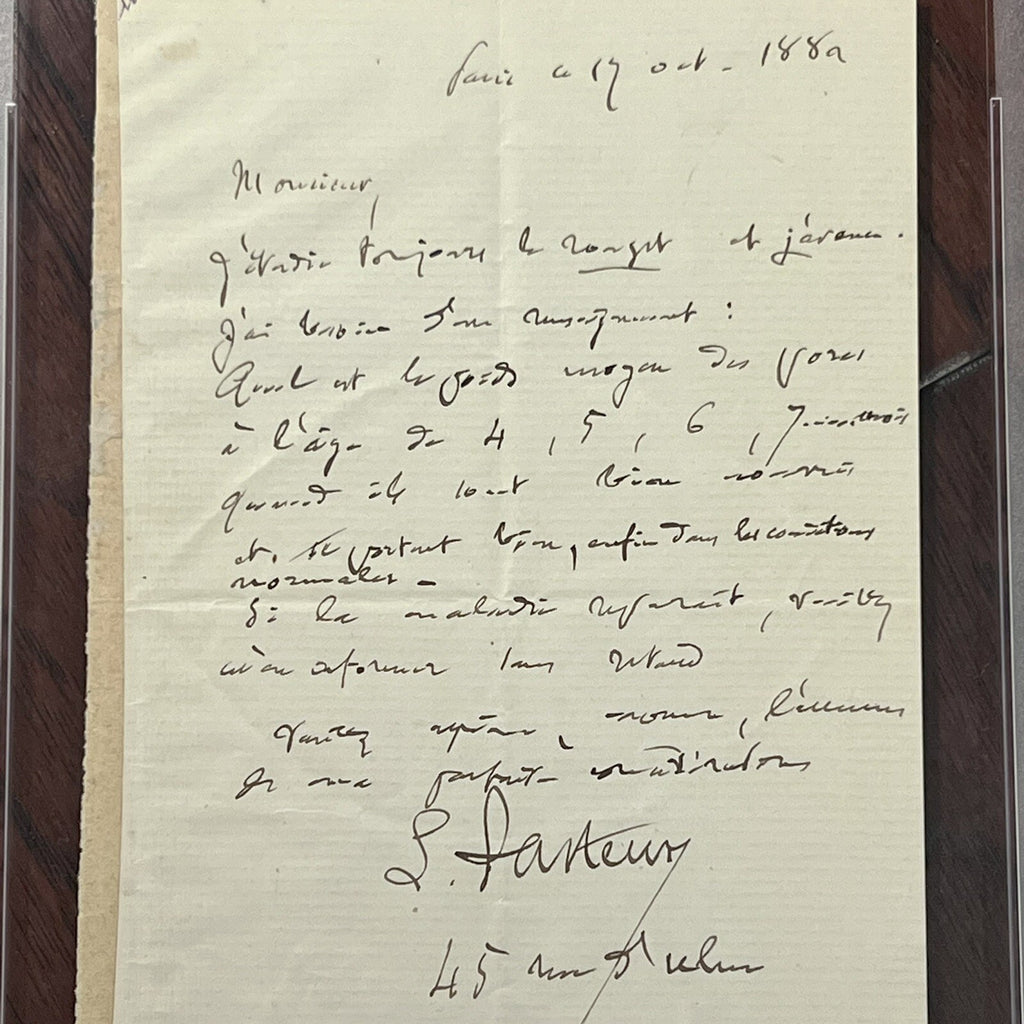 Paris ce 17 oct. 1882
Monsieur,
J'étudie toujours le rouget et j'avance.
J'ai besoin d'un renseignement :
Quel est le poids moyen des porcs
à l'âge de 4, 5, 6, 7 mois
quand ils sont bien nourris
et se portant bien, enfin dans les conditions
normales -
Si la maladie reparait, veuillez
m'en informer sans retard
Veuillez agréer, , l'assurance
de ma parfaite considération
L. Pasteur
45 rue d'ulm